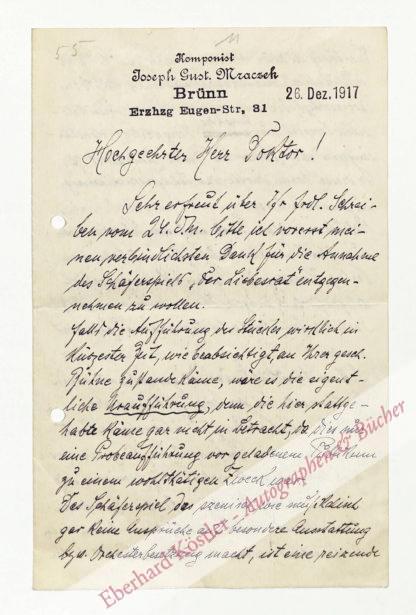 55
Komponist
Joseph Gust. Mraczek
Brünn
26. Dez. 1917
Erzhzg Eugen-Str, 31
Hochgeehrter Herr Doktor!
Sehr erfreut über Ihr frdl. Schrei-
ben vom 24. d.M. bitte ich vorerst mei-
nen verbindlichsten Dank für die Annahme
des Schäferspiels „Der Liebesrat" entgegen-
nehmen zu wollen.
Falls die Aufführung des Stückes wirklich in
kürzester Zeit, wie beabsichtigt, an Ihrer gesch.
Bühne zustande käme, wäre es die eigent-
liche Uraufführung, denn die hier stattge-
habte käme gar nicht in Betracht, da dies nur
eine Probeaufführung vor geladenem Publikum
zu einem wohltätigen Zweck war.
Das Schäferspiel das szenisch wie musikalisch
gar keine Ansprüche auf besondere Ausstattung
bzw. Orchesterbesetzung macht, ist eine reizende
Eberhard Köstler - Autographen & Bücher